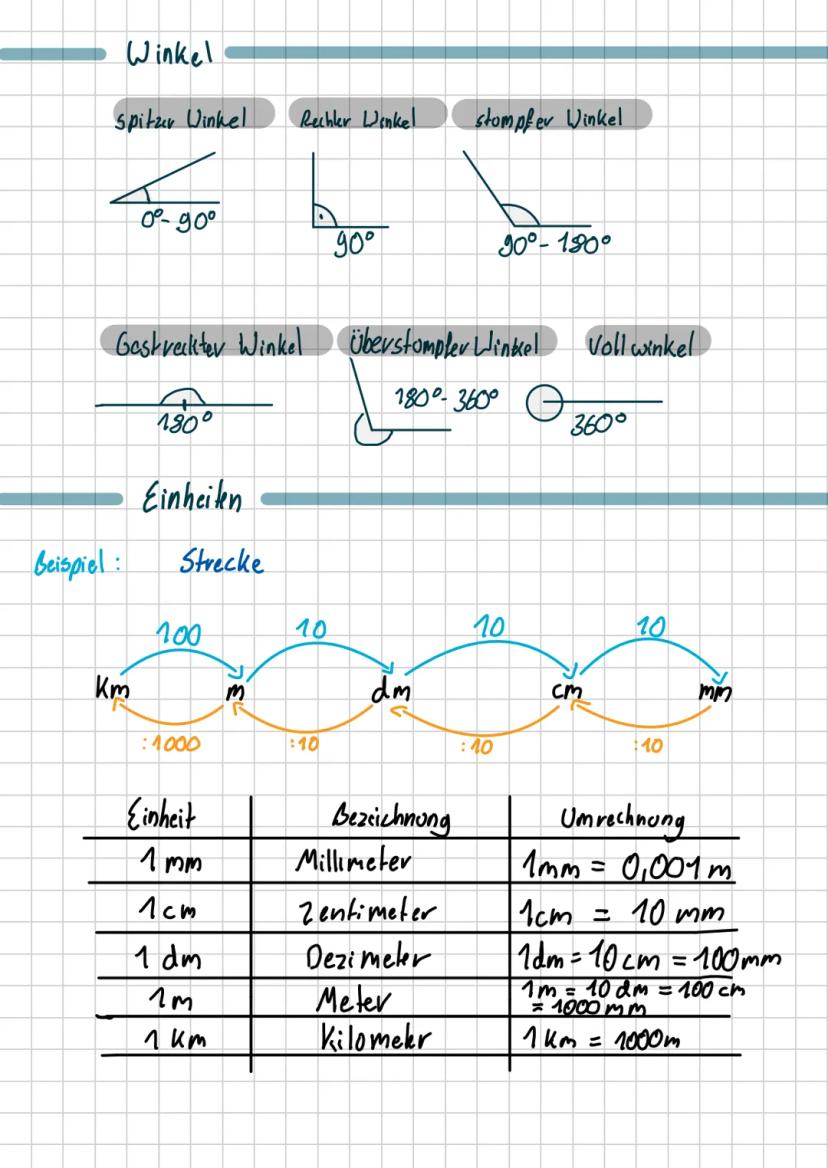 Winkel
Spitzer Winkel Rechter Winkel stompfer Winkel
0°-90° 90° 90°-180°
Gestreckter Winkel Überstompfer Winkel Vollwinkel
180° 180°-360° 360°
Einheiten
Beispiel: Strecke
100 10 10 10
Km m dm cm mm
:1000 :10 :10 :10
Einheit Bezeichnung Umrechnung
1 mm Millimeter 1mm = 0,001 m
1 cm Zentimeter 1cm = 10 mm
1 dm Dezimeter 1dm = 10 cm = 100mm
1 m Meter 1m = 10 dm = 100 cm
= 1000 mm
1 Km Kilometer 1 Km = 1000m